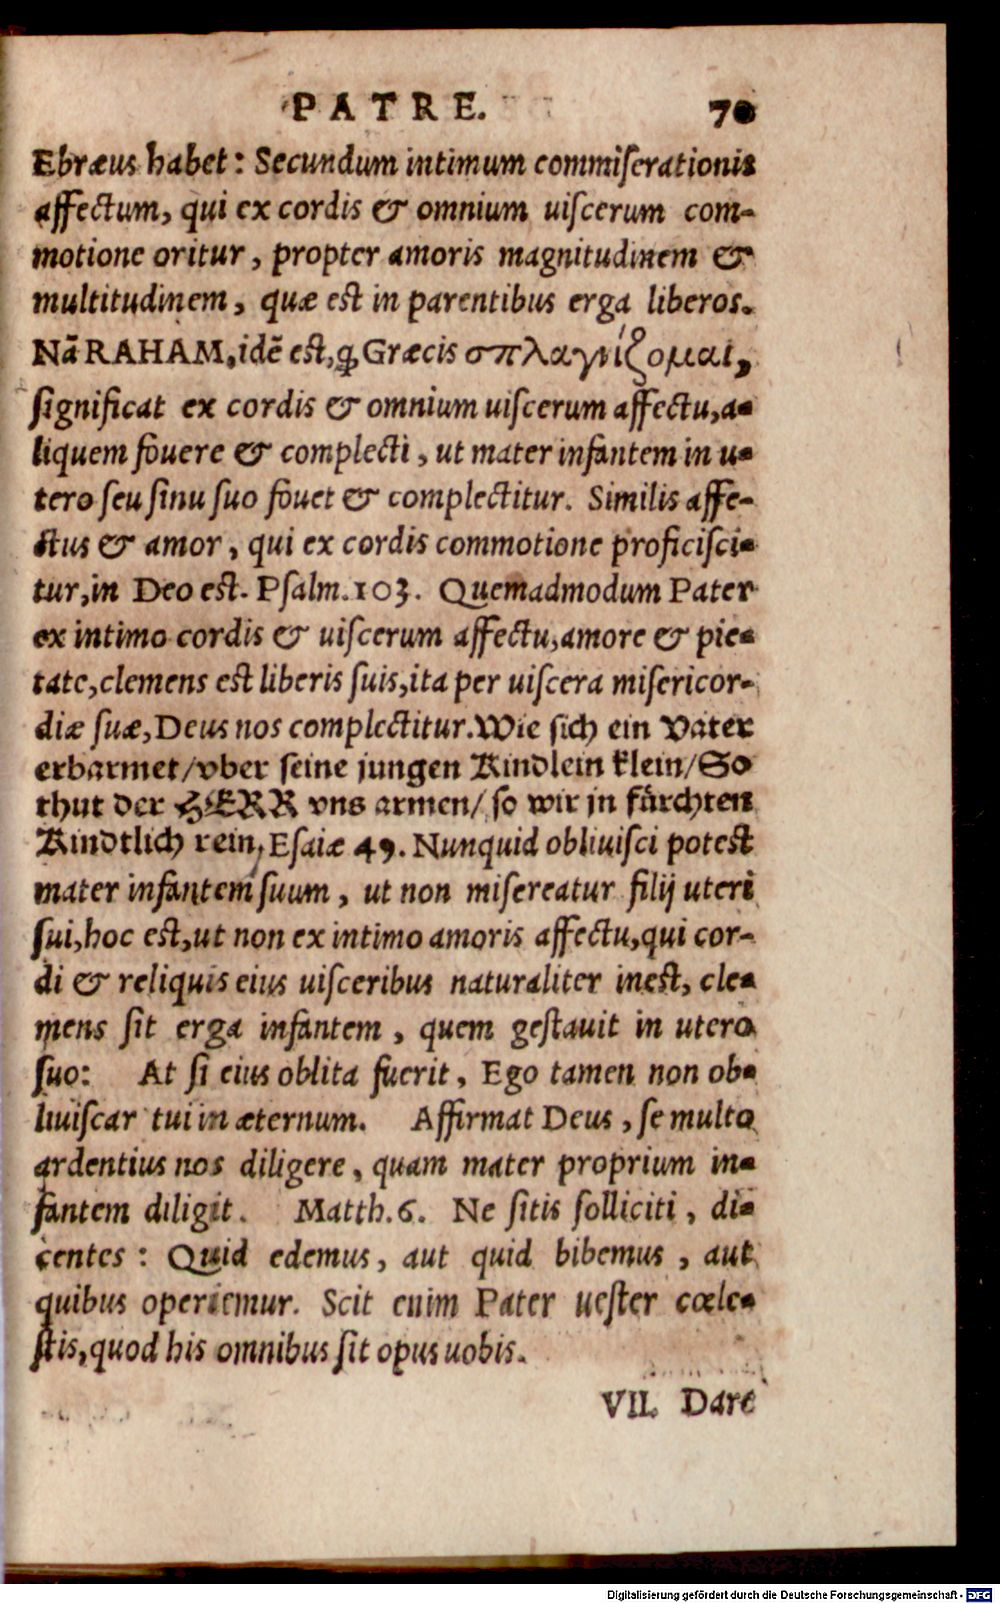 PATRE. 70
Ebræus habet: Secundum intimum commiſerationis
affectum, qui ex cordis & omnium uiſcerum com-
motione oritur, propter amoris magnitudinem &
multitudinem, quæ est in parentibus erga liberos.
Nā RAHAM, idē est, ꝙ Græcis σπλαγνίζομαι,
ſignificat ex cordis & omnium uiſcerum affectu, a-
liquem fouere & complecti, ut mater infantem in u-
tero ſeu ſinu ſuo fouet & complectitur. Similis affe-
ctus & amor, qui ex cordis commotione proficiſci-
tur, in Deo est. Pſalm. 103. Quemadmodum Pater
ex intimo cordis & uiſcerum affectu, amore & pie-
tate, clemens est liberis ſuis, ita per uiſcera miſericor-
diæ ſuæ, Deus nos complectitur. Wie sich ein Vater
erbarmet/ vber seine jungen Kindlein klein/ So
thut der HERR vns armen/ so wir jn fürchten
Kindtlich rein, Eſaiæ 49. Nunquid obliuiſci potest
mater infantem ſuum, ut non miſereatur filij uteri
ſui, hoc est, ut non ex intimo amoris affectu, qui cor-
di & reliquis eius uiſceribus naturaliter inest, cle-
mens ſit erga infantem, quem geſtauit in utero
ſuo: At ſi eius oblita fuerit, Ego tamen non ob-
liuiſcar tui in æternum. Affirmat Deus, ſe multo
ardentius nos diligere, quam mater proprium in-
fantem diligit. Matth. 6. Ne ſitis ſolliciti, di-
centes: Quid edemus, aut quid bibemus, aut
quibus operiemur. Scit enim Pater ueſter cœle-
ſtis, quod his omnibus ſit opus uobis.
VII. Dare
Digitalisierung gefördert durch die Deutsche Forschungsgemeinschaft - DFG